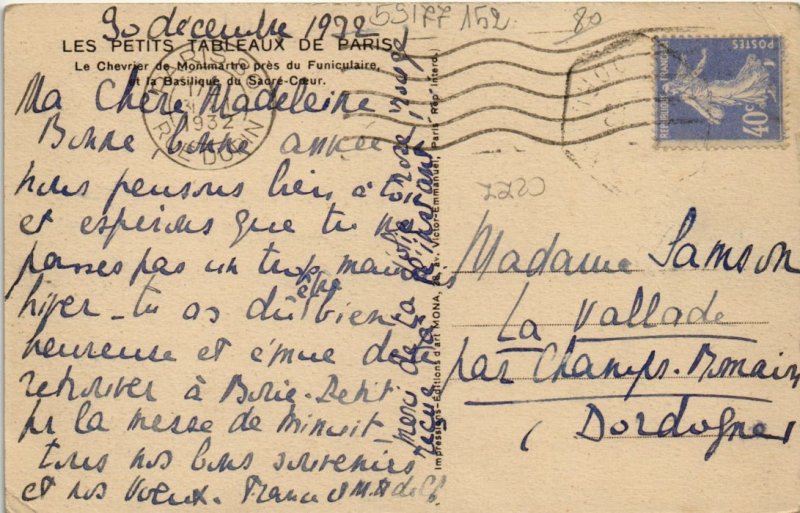 30 décembre 1932
59177 152
80
LES PETITS TABLEAUX DE PARIS
Le Chevrier de Montmartre près du Funiculaire,
et la Basilique du Sacré-Cœur.
1932
RUE DUPIN
REPUBLIQUE FRANÇAISE
POSTES
40c
Ma Chère Madeleine
Bonne, bonne année
nous pensons bien à toi
et espérons que tu ne
passes pas un trop mauvais
hiver - tu as dû être bien
heureuse et émue de te
retrouver à Borie-Petit
pr la messe de Minuit -
tous nos bons souvenirs
et nos voeux. France et
merci de la jolie rose rouge
reçue à l'instant
Impressions-Editions d'art MONA, av. Victor-Emmanuel, Paris Rep. Interd.
2220
Madame Samson
La Vallade
par Champs-Romain
Dordogne